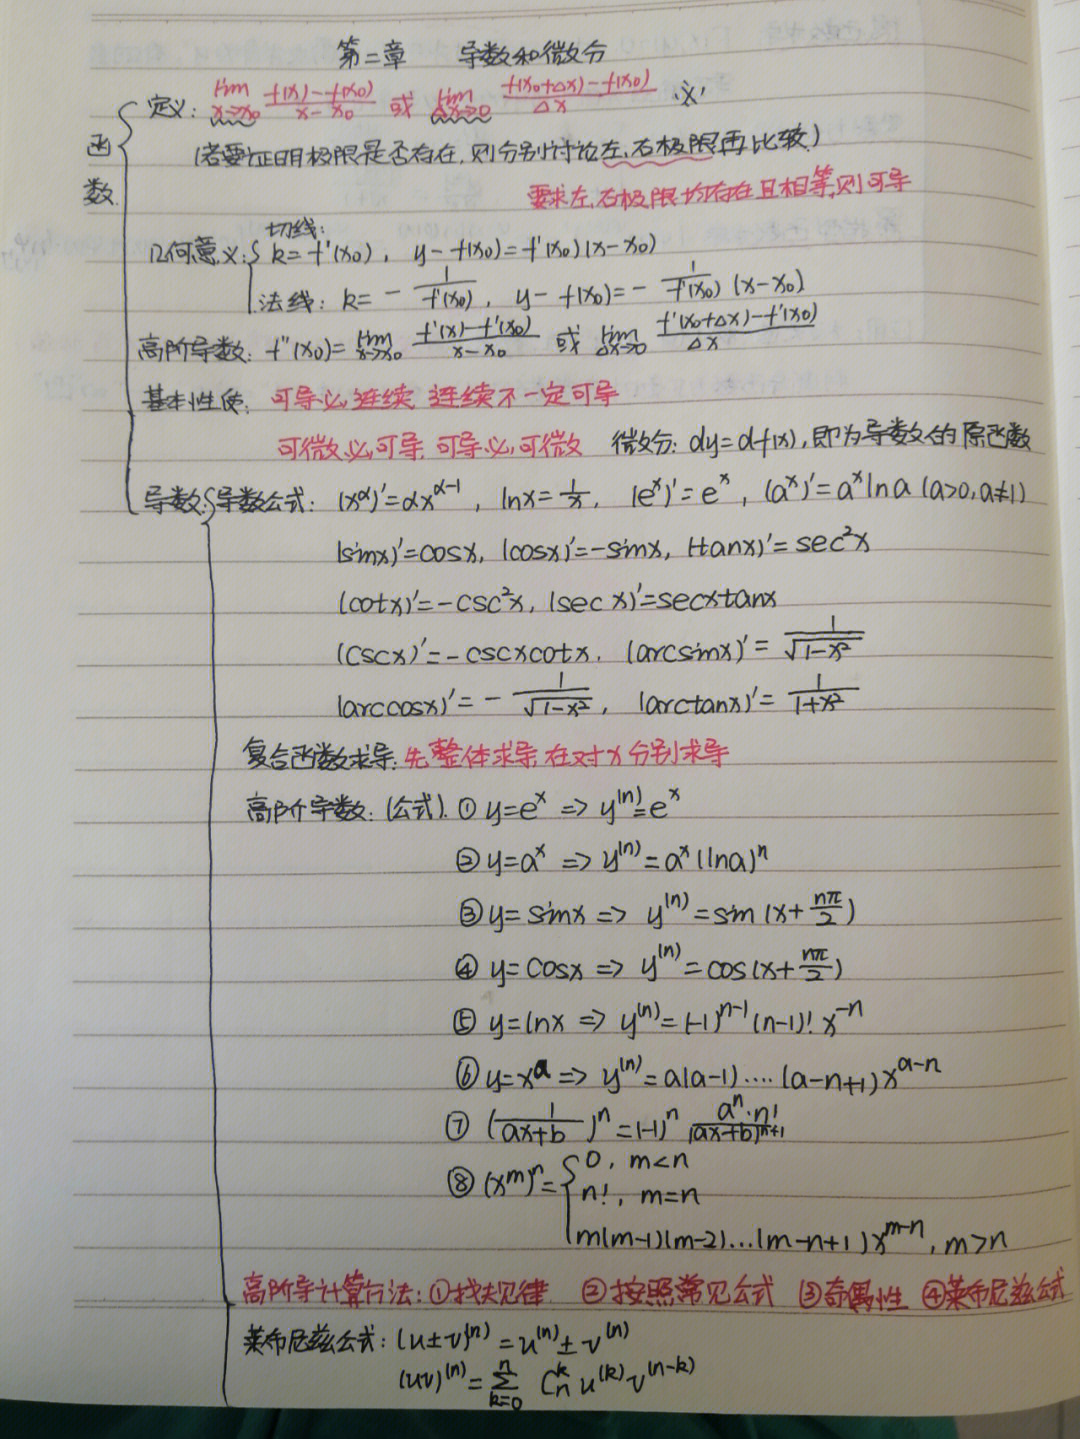 第二章 导数和微分
函数
定义: lim x→x₀ (f(x)-f(x₀))/(x-x₀) 或 lim Δx→0 (f(x₀+Δx)-f(x₀))/Δx
(若要证明极限是否存在,则分别讨论左、右极限再比较)
要求左、右极限均存在且相等,则可导
几何意义: { 切线: k=f'(x₀), y-f(x₀)=f'(x₀)(x-x₀)
法线: k=-1/f'(x₀), y-f(x₀)=-1/f'(x₀) (x-x₀)
高阶导数: f''(x₀)=lim x→x₀ (f'(x)-f'(x₀))/(x-x₀) 或 lim Δx→0 (f'(x₀+Δx)-f'(x₀))/Δx
基本性质: 可导必连续,连续不一定可导
可微必可导,可导必可微 微分: dy=df(x),即为导数的原函数
导数: { 导数公式: (x^α)'=αx^(α-1), lnx=1/x, (e^x)'=e^x, (a^x)'=a^x lna (a>0,a≠1)
(sinx)'=cosx, (cosx)'=-sinx, (tanx)'=sec²x
(cotx)'=-csc²x, (secx)'=secxtanx
(cscx)'=-cscxcotx, (arcsinx)'=1/√(1-x²)
(arccosx)'=-1/√(1-x²), (arctanx)'=1/(1+x²)
复合函数求导: 先整体求导,在对x分别求导
高阶导数:(公式). ①y=e^x => y^(n)=e^x
②y=a^x => y^(n)=a^x(lna)^n
③y=sinx => y^(n)=sin(x+nπ/2)
④y=cosx => y^(n)=cos(x+nπ/2)
⑤y=lnx => y^(n)=(-1)^(n-1)(n-1)! x^(-n)
⑥y=x^a => y^(n)=a(a-1)....(a-n+1)x^(a-n)
⑦(1/(ax+b))^n=(-1)^n (a^n·n!)/(ax+b)^(n+1)
⑧(x^m)^n={ 0, m<n
n!, m=n
m(m-1)(m-2)...(m-n+1)x^(m-n), m>n
高阶导计算方法:①找规律 ②按照常见公式 ③奇偶性 ④莱布尼兹公式
莱布尼兹公式:(u±v)^(n)=u^(n)±v^(n)
(uv)^(n)=∑ₖ₌₀ⁿ Cₙᵏ u^(k) v^(n-k)